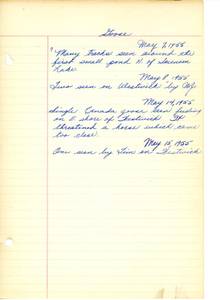 Goose
May 7, 1955
Many tracks seen around the
first small pond N. of
Lake
May 8, 1955
Two seen on Westwick by
May 14, 1955
Single Canada goose seen feeding
on E shore of Fentwick. It
threatened a horse which came
too close.
May 15, 1955
One seen by Jim on Fentwick